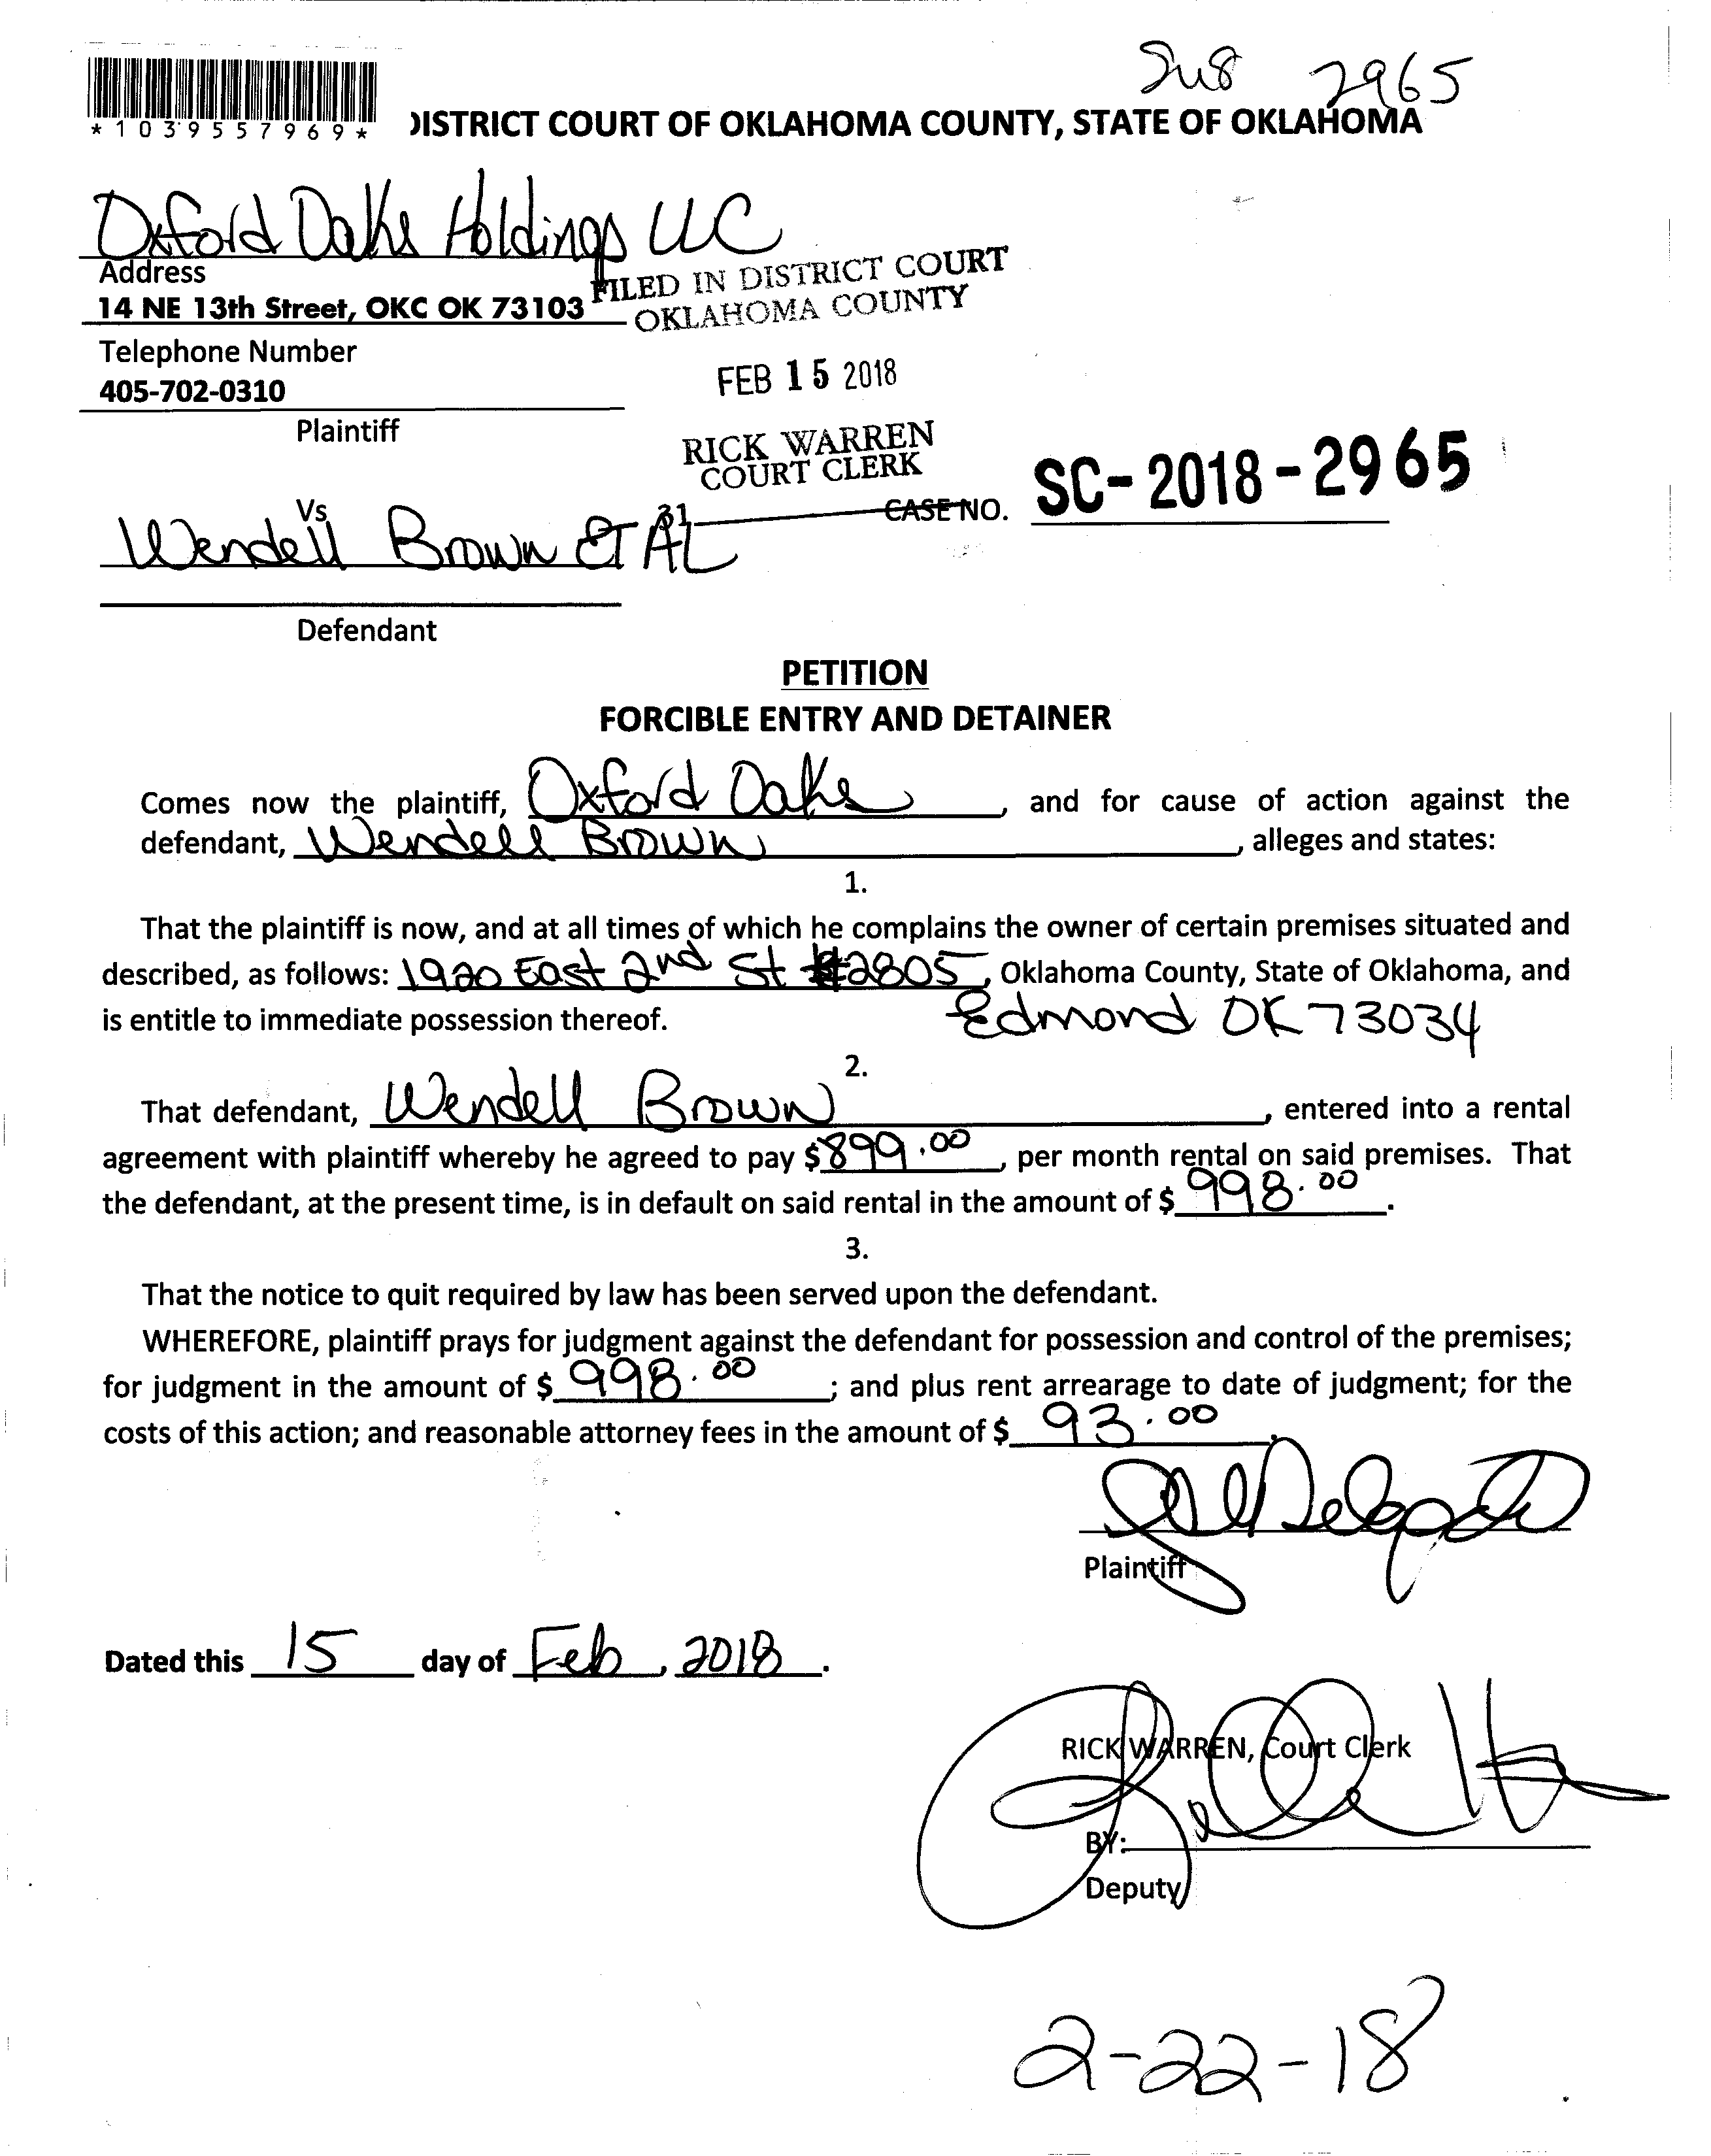 2965
*1039557969*
DISTRICT COURT OF OKLAHOMA COUNTY, STATE OF OKLAHOMA
Oxford Oaks Holdings LLC
Address
14 NE 13th Street, OKC OK 73103
FILED IN DISTRICT COURT
OKLAHOMA COUNTY
Telephone Number
405-702-0310
FEB 15 2018
Plaintiff
RICK WARREN
COURT CLERK
Vs
31
CASE NO. SC-2018-2965
Wendell Brown ET AL
Defendant
PETITION
FORCIBLE ENTRY AND DETAINER
Comes now the plaintiff, Oxford Oaks, and for cause of action against the
defendant, Wendell Brown, alleges and states:
1.
That the plaintiff is now, and at all times of which he complains the owner of certain premises situated and
described, as follows: 1920 East 2nd St #2805, Oklahoma County, State of Oklahoma, and
is entitle to immediate possession thereof. Edmond OK 73034
2.
That defendant, Wendell Brown, entered into a rental
agreement with plaintiff whereby he agreed to pay $899.00, per month rental on said premises. That
the defendant, at the present time, is in default on said rental in the amount of $998.00.
3.
That the notice to quit required by law has been served upon the defendant.
WHEREFORE, plaintiff prays for judgment against the defendant for possession and control of the premises;
for judgment in the amount of $998.00; and plus rent arrearage to date of judgment; for the
costs of this action; and reasonable attorney fees in the amount of $93.00.
Plaintiff
Dated this 15 day of Feb, 2018.
RICK WARREN, Court Clerk
BY:
Deputy
2-22-18